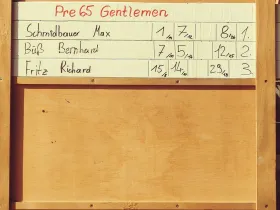 Pre65 Gentlemen
Schmidbauer Max 1 7 8 1.
Büß Bernhard 7 5 12 2.
Fritz Richard 15 14 29 3.